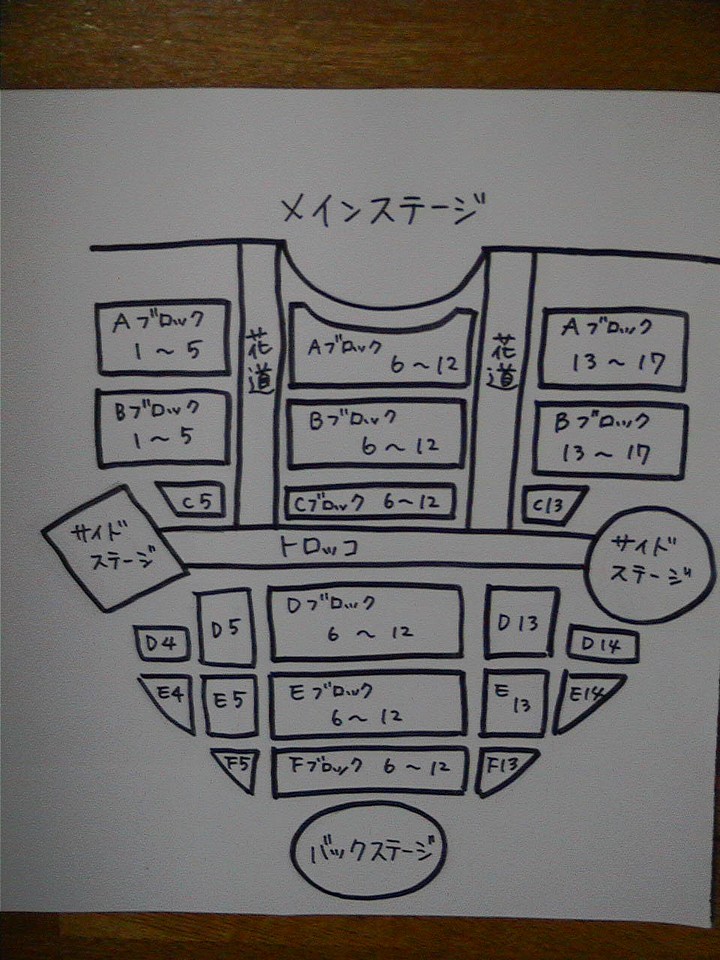 メインステージ
Aブロック
1～5
花道
Aブロック
6～12
花道
Aブロック
13～17
Bブロック
1～5
Bブロック
6～12
Bブロック
13～17
C5
Cブロック 6～12
C13
サイド
ステージ
トロッコ
サイド
ステージ
D4
D5
Dブロック
6～12
D13
D14
E4
E5
Eブロック
6～12
E
13
E14
F5
Fブロック 6～12
F13
バックステージ